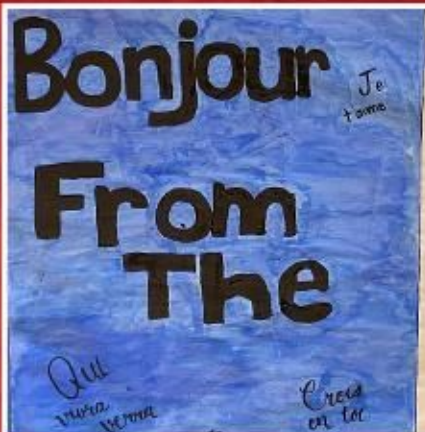 Bonjour
Je
t'aime
From
The
Qui
vivra
verra
Crois
en toi